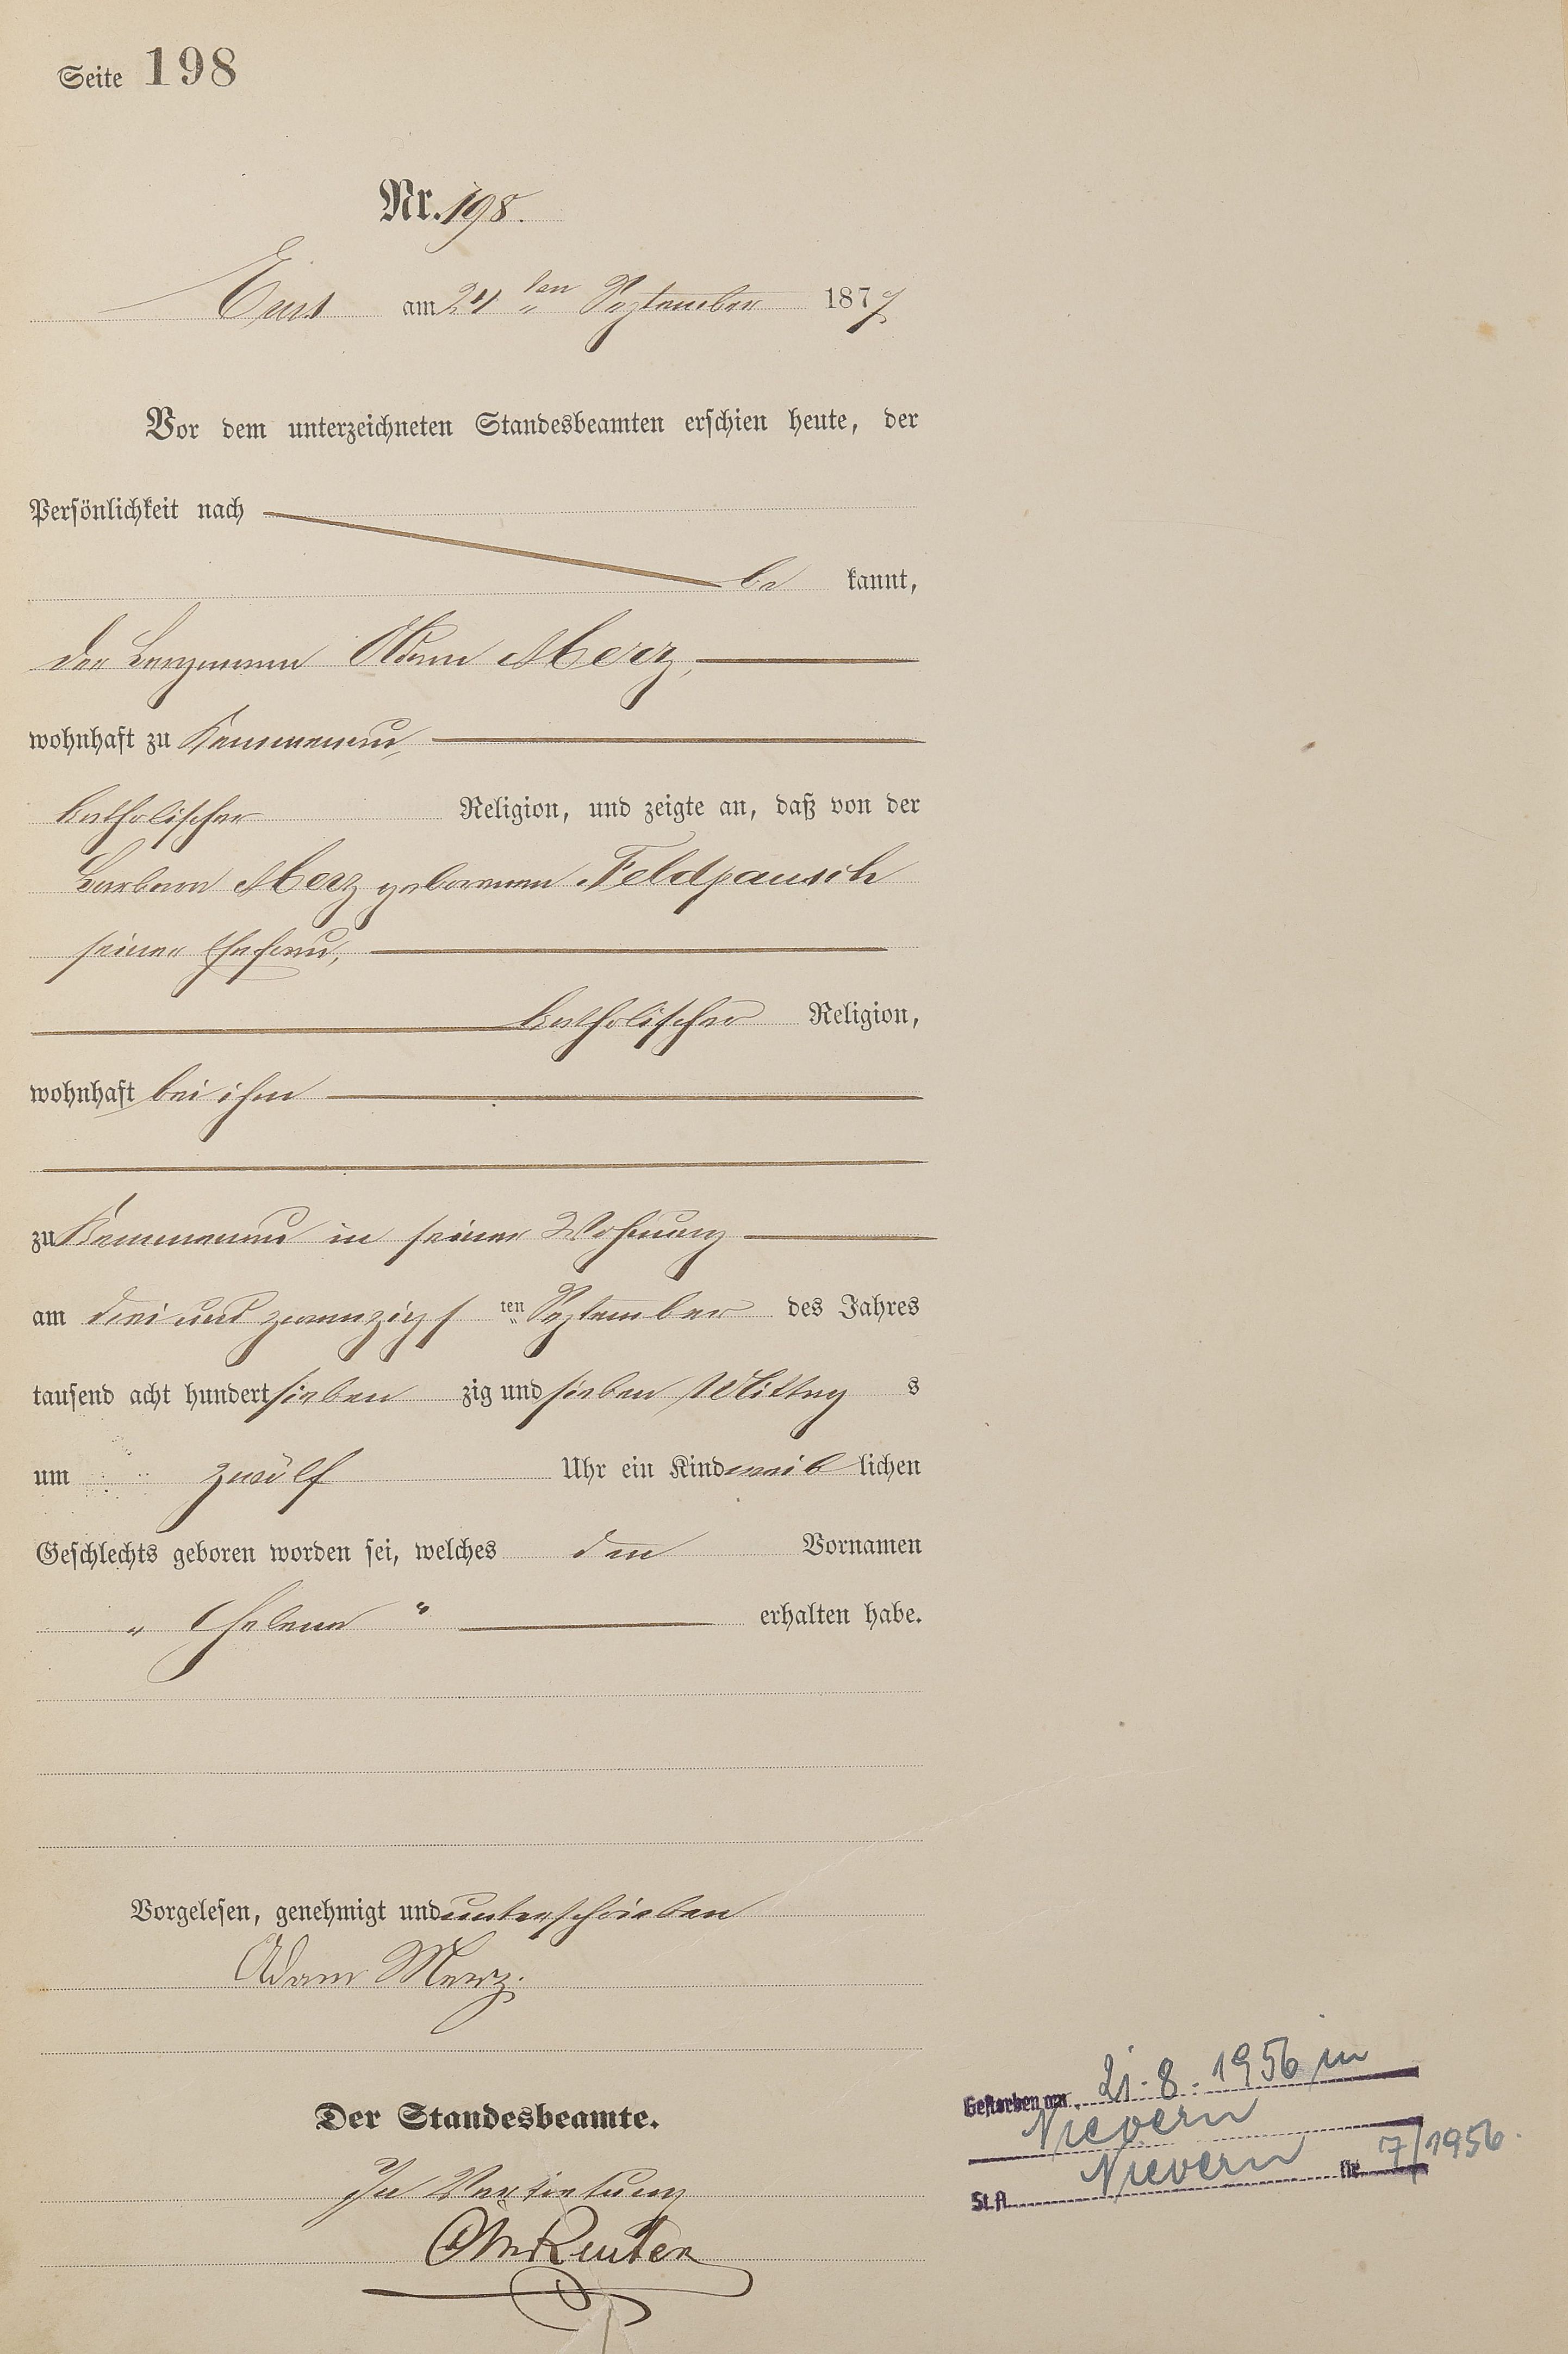 Seite 198
Nr. 198.
Ems am 24 ten September 1877
Vor dem unterzeichneten Standesbeamten erschien heute, der
Persönlichkeit nach
be kannt,
der Bergmann Adam Merz,
wohnhaft zu Kemmenau,
katholischer Religion, und zeigte an, daß von der
Barbara Merz geborenen Feldpausch
seiner Ehefrau,
katholischer Religion,
wohnhaft bei ihm
zu Kemmenau in seiner Wohnung
am drei und zwanzigs ten September des Jahres
tausend acht hundert sieben zig und sieben Mittag s
um zwölf Uhr ein Kind weib lichen
Geschlechts geboren worden sei, welches den Vornamen
„ Helena “ erhalten habe.
Vorgelesen, genehmigt und unterschrieben
Adam Merz.
Der Standesbeamte.
In Vertretung
Reuter
Gestorben am 21.8.1956 in
Nievern
St.A. Nievern Nr. 7/1956.